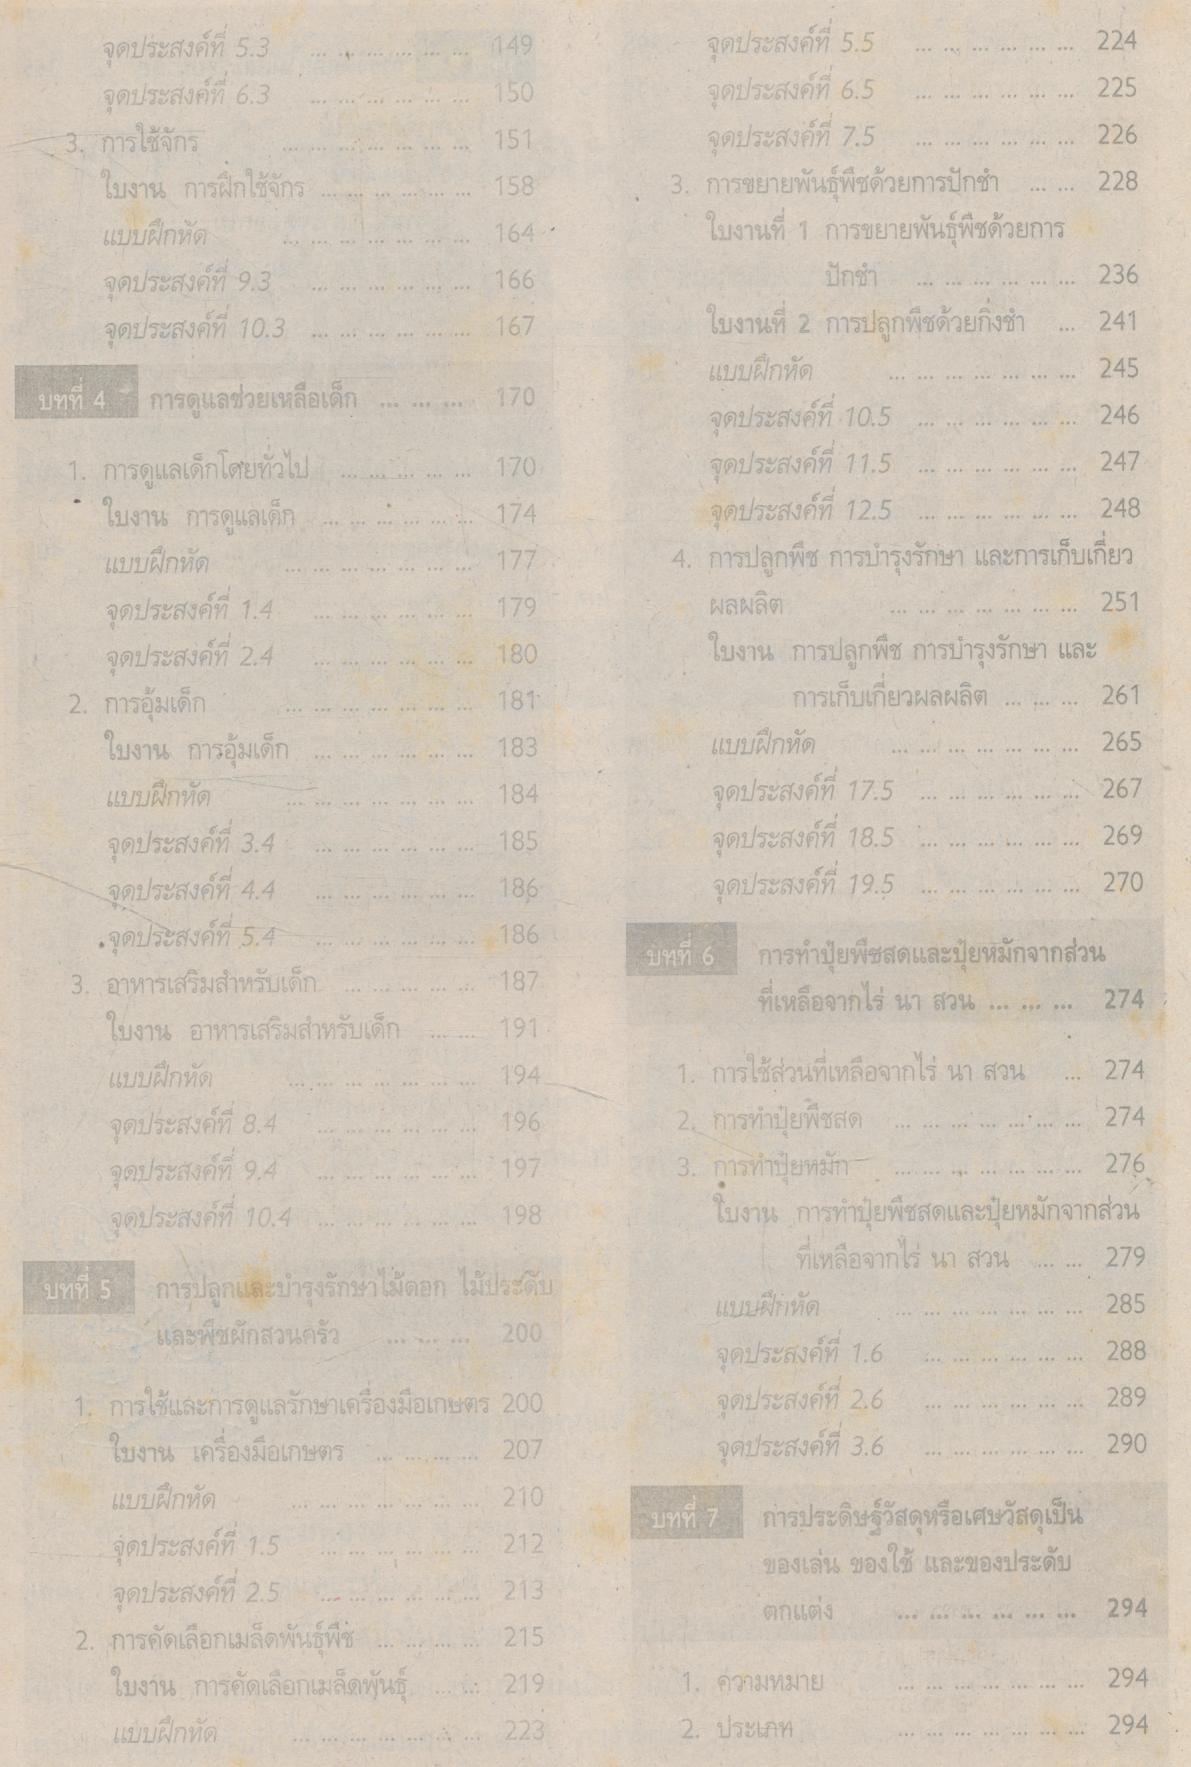 จุดประสงค์ที่ 5.3 ... ... ... ... ... ... 149
จุดประสงค์ที่ 6.3 ... ... ... ... ... ... 150
3. การใช้จักร ... ... ... ... ... ... ... 151
ใบงาน การฝึกใช้จักร ... ... ... ... ... ... 158
แบบฝึกหัด ... ... ... ... ... ... ... 164
จุดประสงค์ที่ 9.3 ... ... ... ... ... ... 166
จุดประสงค์ที่ 10.3 ... ... ... ... ... ... 167
บทที่ 4 การดูแลช่วยเหลือเด็ก ... ... ... 170
1. การดูแลเด็กโดยทั่วไป ... ... ... ... ... 170
ใบงาน การดูแลเด็ก ... ... ... ... ... ... 174
แบบฝึกหัด ... ... ... ... ... ... ... 177
จุดประสงค์ที่ 1.4 ... ... ... ... ... ... 179
จุดประสงค์ที่ 2.4 ... ... ... ... ... ... 180
2. การอุ้มเด็ก ... ... ... ... ... ... ... 181
ใบงาน การอุ้มเด็ก ... ... ... ... ... ... 183
แบบฝึกหัด ... ... ... ... ... ... ... 184
จุดประสงค์ที่ 3.4 ... ... ... ... ... ... 185
จุดประสงค์ที่ 4.4 ... ... ... ... ... ... 186
จุดประสงค์ที่ 5.4 ... ... ... ... ... ... 186
3. อาหารเสริมสำหรับเด็ก ... ... ... ... ... 187
ใบงาน อาหารเสริมสำหรับเด็ก ... ... 191
แบบฝึกหัด ... ... ... ... ... ... ... 194
จุดประสงค์ที่ 8.4 ... ... ... ... ... ... 196
จุดประสงค์ที่ 9.4 ... ... ... ... ... ... 197
จุดประสงค์ที่ 10.4 ... ... ... ... ... ... 198
บทที่ 5 การปลูกและบำรุงรักษาไม้ดอก ไม้ประดับ
และพืชผักสวนครัว ... ... ... 200
1. การใช้และการดูแลรักษาเครื่องมือเกษตร 200
ใบงาน เครื่องมือเกษตร ... ... ... ... 207
แบบฝึกหัด ... ... ... ... ... ... ... 210
จุดประสงค์ที่ 1.5 ... ... ... ... ... ... 212
จุดประสงค์ที่ 2.5 ... ... ... ... ... ... 213
2. การคัดเลือกเมล็ดพันธุ์พืช ... ... ... ... 215
ใบงาน การคัดเลือกเมล็ดพันธุ์ ... ... 219
แบบฝึกหัด ... ... ... ... ... ... ... 223
จุดประสงค์ที่ 5.5 ... ... ... ... ... ... 224
จุดประสงค์ที่ 6.5 ... ... ... ... ... ... 225
จุดประสงค์ที่ 7.5 ... ... ... ... ... ... 226
3. การขยายพันธุ์พืชด้วยการปักชำ ... ... 228
ใบงานที่ 1 การขยายพันธุ์พืชด้วยการ
ปักชำ ... ... ... ... ... ... 236
ใบงานที่ 2 การปลูกพืชด้วยกิ่งชำ ... 241
แบบฝึกหัด ... ... ... ... ... ... ... 245
จุดประสงค์ที่ 10.5 ... ... ... ... ... ... 246
จุดประสงค์ที่ 11.5 ... ... ... ... ... ... 247
จุดประสงค์ที่ 12.5 ... ... ... ... ... ... 248
4. การปลูกพืช การบำรุงรักษา และการเก็บเกี่ยว
ผลผลิต ... ... ... ... ... ... ... 251
ใบงาน การปลูกพืช การบำรุงรักษา และ
การเก็บเกี่ยวผลผลิต ... ... ... 261
แบบฝึกหัด ... ... ... ... ... ... ... 265
จุดประสงค์ที่ 17.5 ... ... ... ... ... ... 267
จุดประสงค์ที่ 18.5 ... ... ... ... ... ... 269
จุดประสงค์ที่ 19.5 ... ... ... ... ... ... 270
บทที่ 6 การทำปุ๋ยพืชสดและปุ๋ยหมักจากส่วน
ที่เหลือจากไร่ นา สวน ... ... ... 274
1. การใช้ส่วนที่เหลือจากไร่ นา สวน ... 274
2. การทำปุ๋ยพืชสด ... ... ... ... ... ... ... 274
3. การทำปุ๋ยหมัก ... ... ... ... ... ... ... 276
ใบงาน การทำปุ๋ยพืชสดและปุ๋ยหมักจากส่วน
ที่เหลือจากไร่ นา สวน ... ... 279
แบบฝึกหัด ... ... ... ... ... ... ... 285
จุดประสงค์ที่ 1.6 ... ... ... ... ... ... 288
จุดประสงค์ที่ 2.6 ... ... ... ... ... ... 289
จุดประสงค์ที่ 3.6 ... ... ... ... ... ... 290
บทที่ 7 การประดิษฐ์วัสดุหรือเศษวัสดุเป็น
ของเล่น ของใช้ และของประดับ
ตกแต่ง ... ... ... ... ... ... 294
1. ความหมาย ... ... ... ... ... ... ... 294
2. ประเภท ... ... ... ... ... ... ... 294